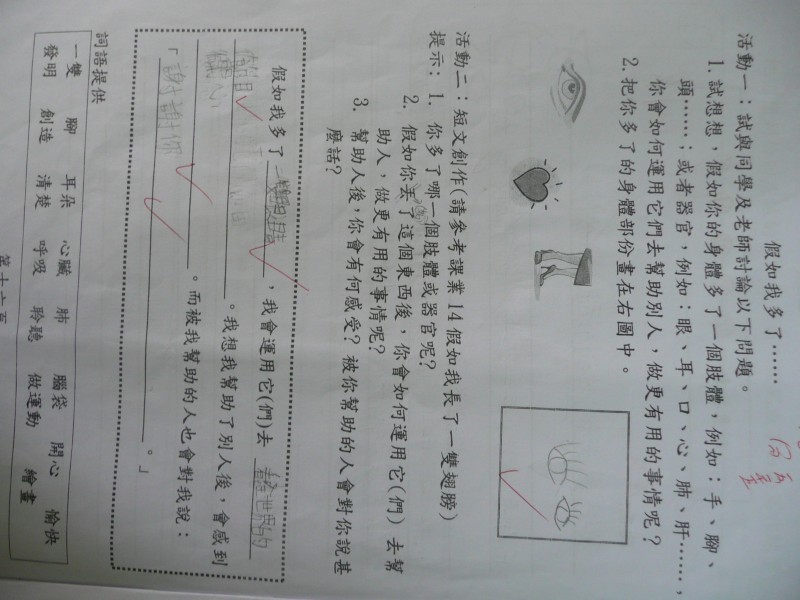 假如我多了……
活動一：試與同學及老師討論以下問題。
1. 試想想，假如你的身體多了一個肢體，例如：手、腳、
頭……；或者器官，例如：眼、耳、口、心、肺、肝……，
你會如何運用它們去幫助別人，做更有用的事情呢？
2. 把你多了的身體部份畫在右圖中。
活動二：短文創作(請參考課業14 假如我長了一雙翅膀)
提示：1. 你多了哪一個肢體或器官呢？
2. 假如你丢了這個東西後，你會如何運用它(們) 去幫
助人，做更有用的事情呢？
3. 幫助人後，你會有何感受？被你幫助的人會對你說甚
麼話？
假如我多了一雙眼睛，我會運用它(們)去看世界的
。我想我幫助了別人後，會感到
。而被我幫助的人也會對我說：
「謝謝你。」
詞語提供
一雙 腳 耳朵 心臟 肺 腦袋 開心 愉快
發明 創造 清楚 呼吸 聆聽 做運動 繪畫
第十六頁